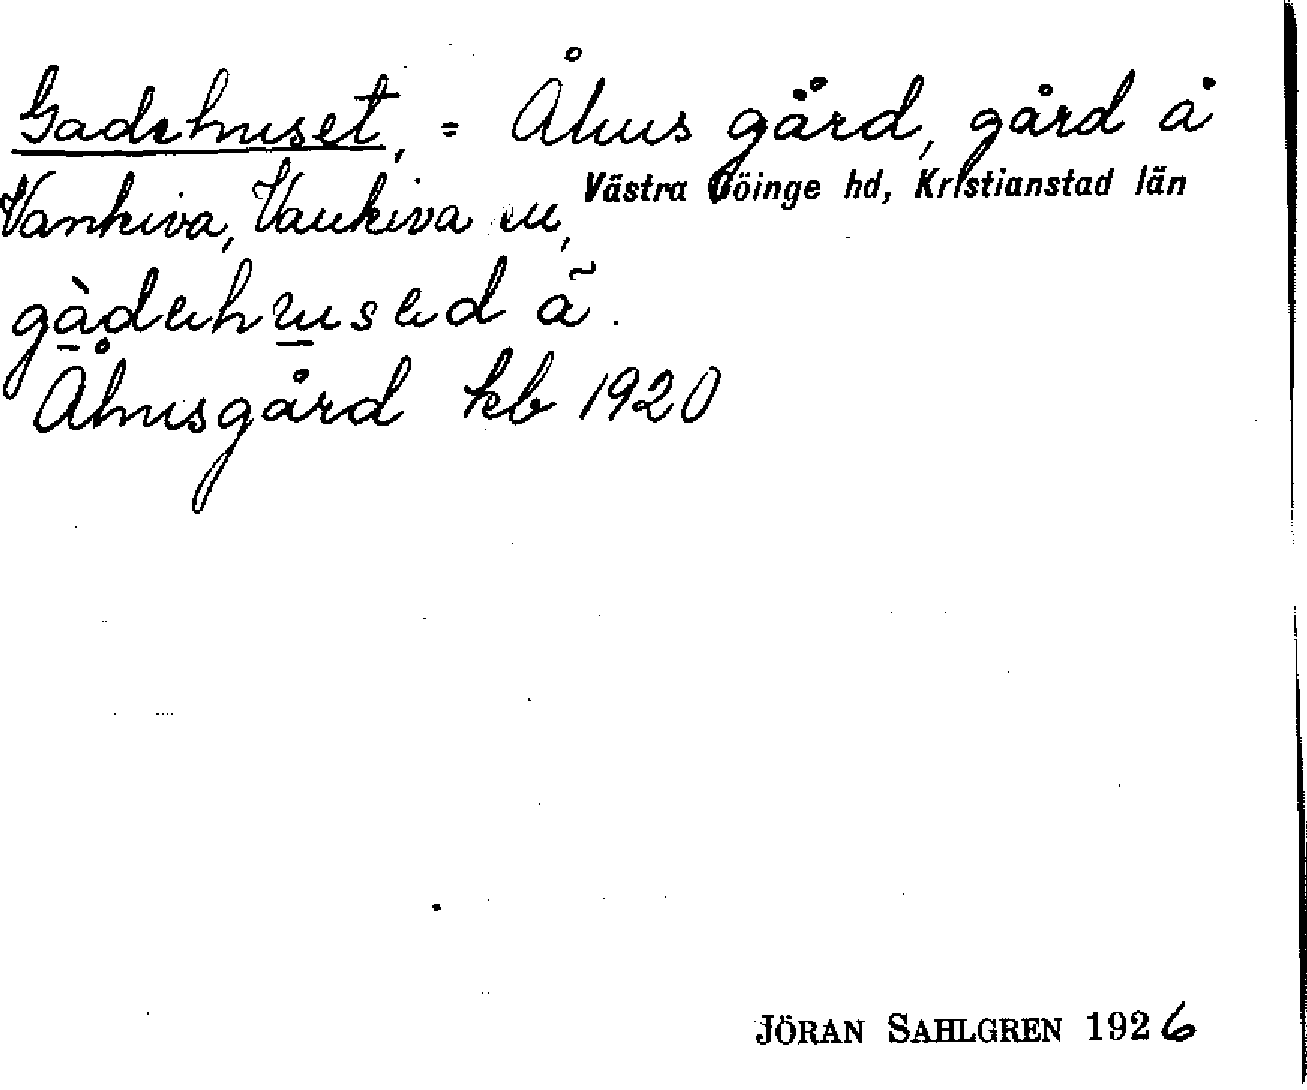 Gadehuset, = Åhus gård, gård å
Vankiva, Vankiva sn, Västra Göinge hd, Kristianstad län
gàdəhusəd ã.
Åhusgård kb 1920
JÖRAN SAHLGREN 1926